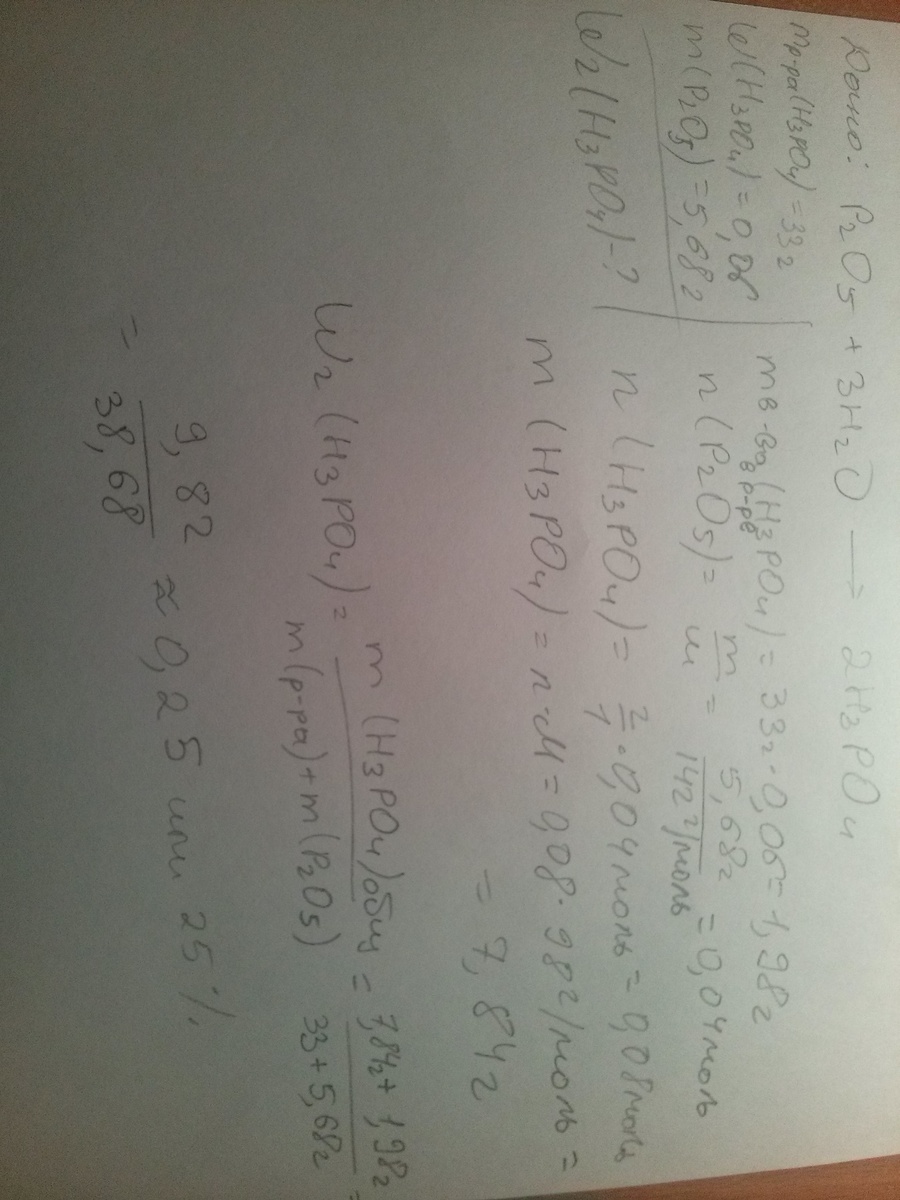 Дано: P₂O₅ + 3H₂O → 2H₃PO₄
mр-ра(H₃PO₄) = 33г
W(H₃PO₄) = 0,06
m(P₂O₅) = 5,68г
W₂(H₃PO₄) - ?
mв-ва в р-ре(H₃PO₄) = 33г · 0,06 = 1,98г
n(P₂O₅) = m/M = 5,68г/142г/моль = 0,04моль
n(H₃PO₄) = 2/1 · 0,04моль = 0,08моль
m(H₃PO₄) = n·M = 0,08 · 98г/моль =
= 7,84г
W₂(H₃PO₄) = m(H₃PO₄)общ/m(р-ра)+m(P₂O₅) = 7,84г+1,98г/33+5,68г =
= 9,82/38,68 ≈ 0,25 или 25%